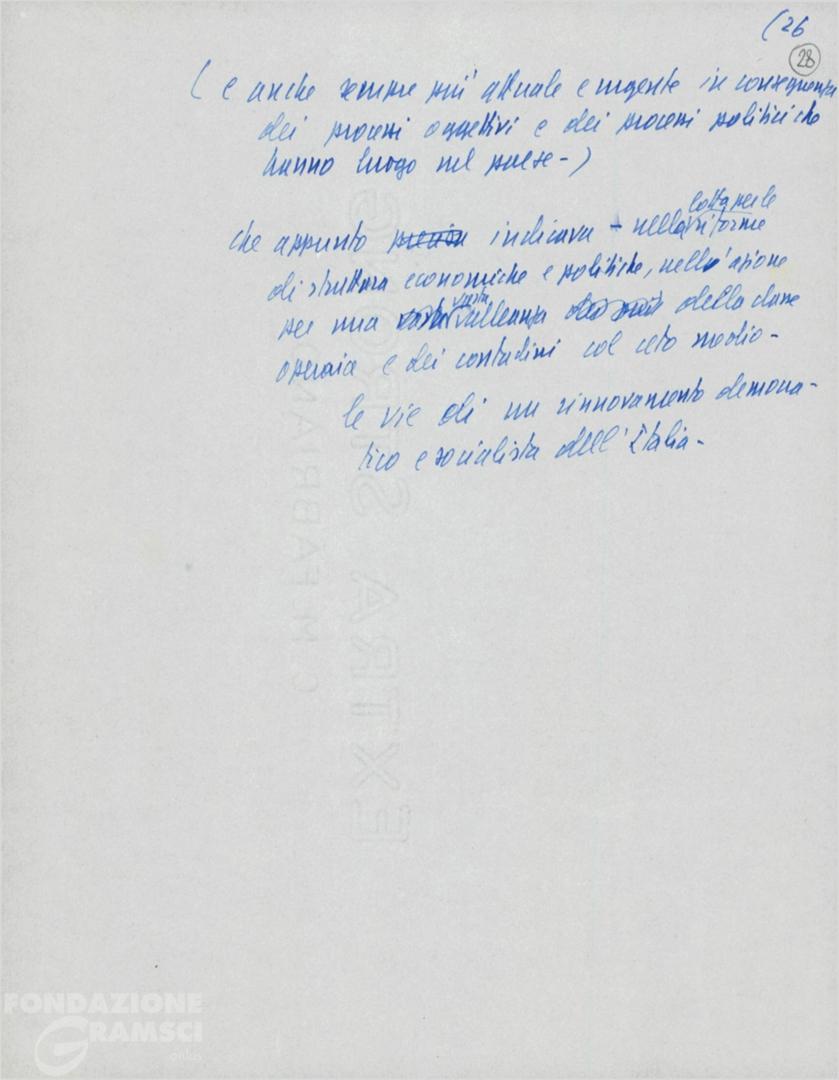 (26
28
(e anche sempre più attuale e urgente in conseguenza
dei processi oggettivi e dei processi politici che
hanno luogo nel paese-)
che appunto indicava - nella lotta per le riforme
di struttura economiche e politiche, nell'azione
per una vasta alleanza della classe
operaia e dei contadini col ceto medio-
le vie di un rinnovamento democra-
tico e socialista dell'Italia-
EXTRA STRONG
C. M. FABRIANO
FONDAZIONE
GRAMSCI
onlus